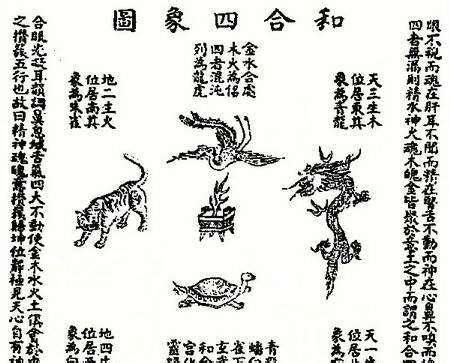 和合四象圖
眼不視而魂在肝耳不聞而精在腎舌不動而神在心鼻不嗅而
四者無漏則精水神火魂木魄金皆聚於意土之中而謂之和合
天三生木
位居東其
象為青龍
金水合處
木火為侶
四者混沌
列為龍虎
地二生火
位居南其
象為朱雀
天一
位居
象為
青龍
雀下
玄武
和合
宮化
地四生
位居西
象為白
合眼光凝耳韻調鼻息緘舌氣四大不動使金木水火土俱會於
之攢簇五行也故曰精神魂魄意攢簇歸坤位靜極見天心自有神